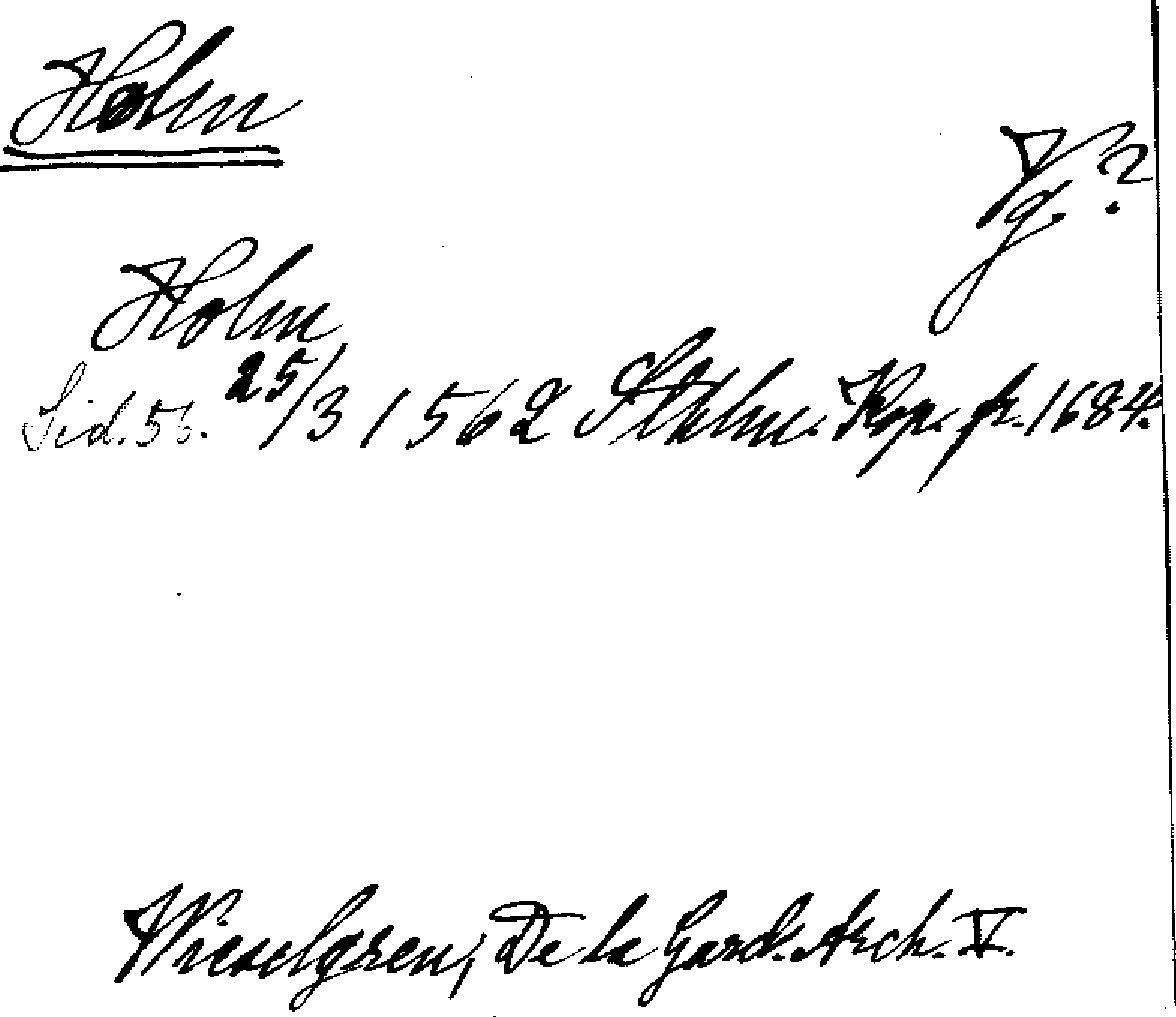 Holm
Vg. ?
Holm
Sid. 56. 25/3 1562 Sthlm. Kop. fr. 1684.
Wieselgren, De la Gard. Arch. V.